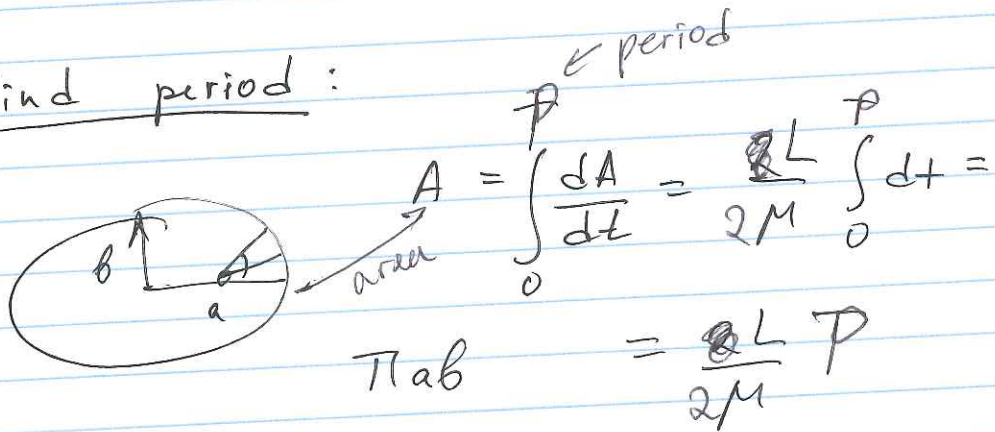 ind period :
← period
A = ∫₀ᴾ dA/dt = L/2μ ∫₀ᴾ dt =
area
b
a
πab = L/2μ P